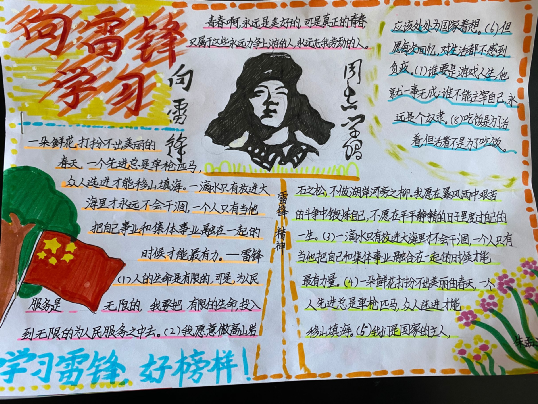 向雷锋
学习
青春啊,永远是美好的,可是真正的青春
只属于这些永远力争上游的人,永远忘我劳动的人。
向雷锋
同志学习
应该处处为国家着想,(6)但
愿每次回忆,对生活都不感到
负疚。(7)谁要是游戏人生,他
就一事无成,谁不能主宰自己,永
远是个奴隶。(8)吃饭是为了活
着,但活着不是为了吃饭。
一朵鲜花打扮不出美丽的
春天,一个先进总是单枪匹马,
众人先进才能移山填海。一滴水只有放进大
海里才永远不会干涸,一个人只有当他
把自己事业和集体事业融合在一起的
时候才能最有力。—雷锋
(1)人的生命是有限的,可是,为人民
服务是无限的,我要把有限的生命,投入
到无限的为人民服务之中去。(2)我愿意做高山岩
雷锋精神
石之松,不做湖岸河旁之柳,我愿在暴风雨中艰苦
的斗争中锻炼自己,不愿在平平静静的日子里度过自己的
一生。(3)一滴水只有放进大海里才不会干涸,一个人只有
当他把自己和集体事业融合在一起的时候才能
最有力量。(4)一朵鲜花打扮不出美丽的春天,一个
人先进总是单枪匹马,众人先进才能
移山填海。(5)我们是国家的主人
学习雷锋,好榜样!